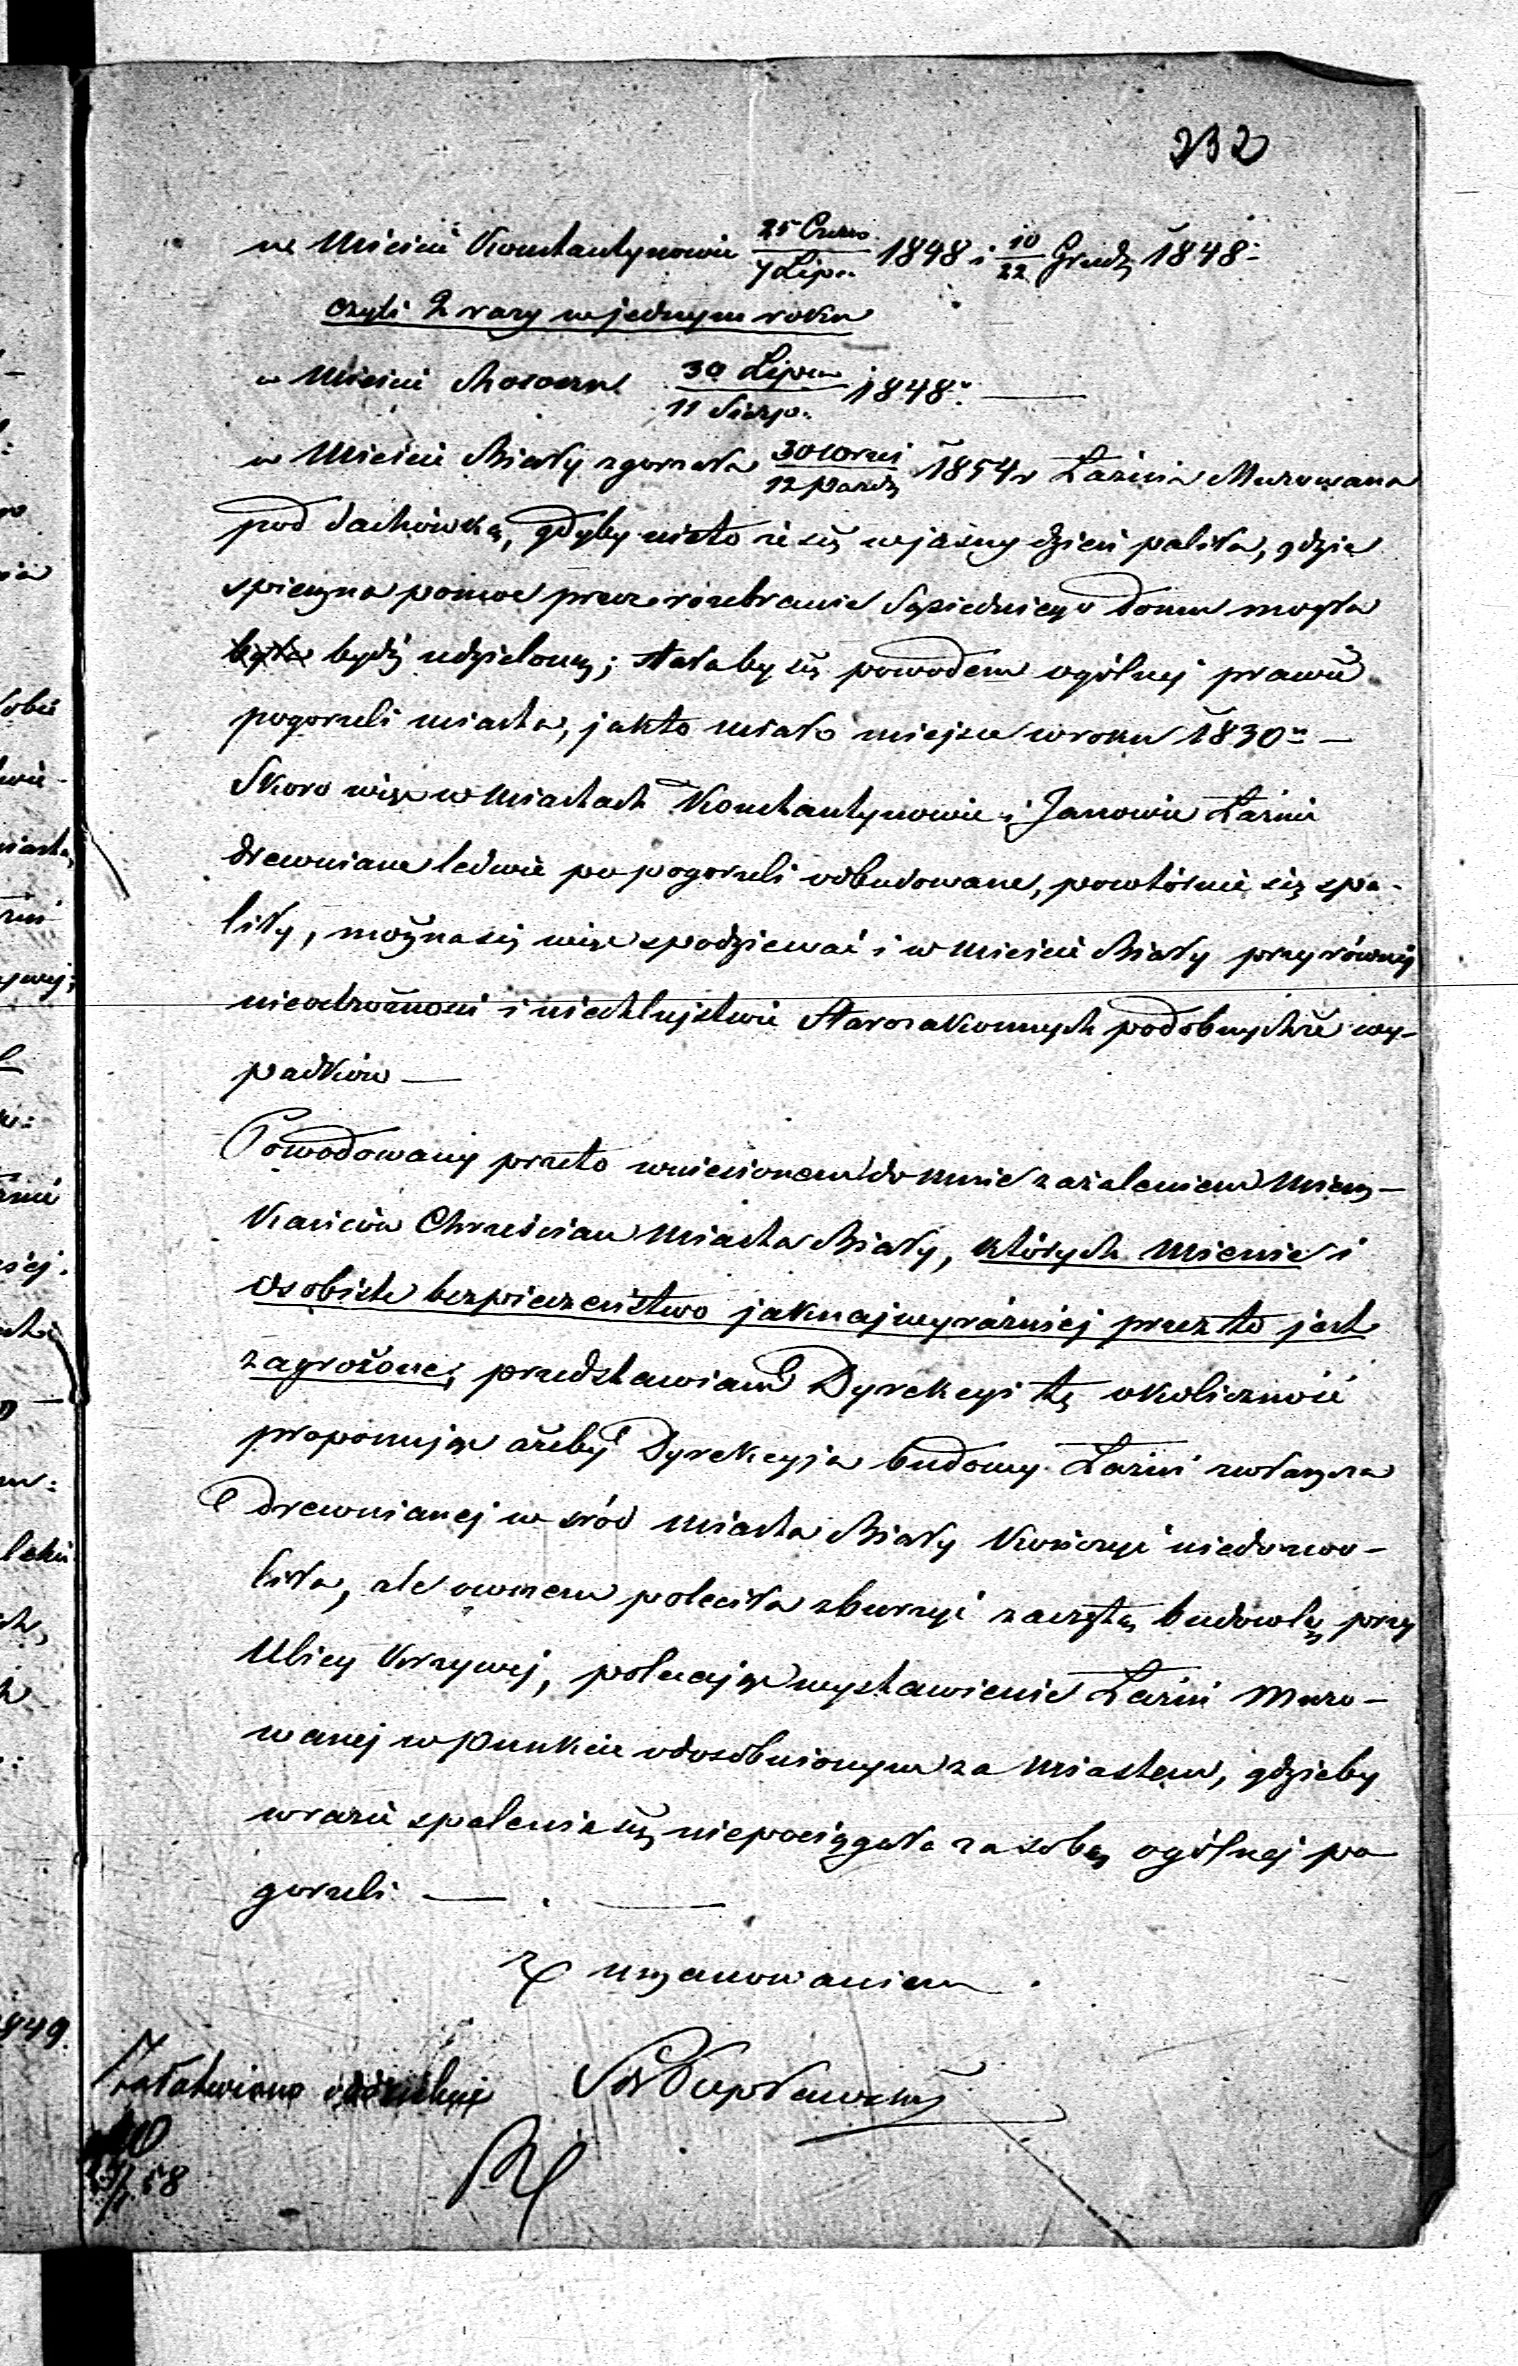 232
w Mieście Konstantynowie 25 Czerw/7 Lipca 1848 i 10/22 Grudz 1848.
czyli 2 razy w jednym roku
w Mieście 30 Lipca/11 Sierp. 1848r.
w Mieście Biały zgorzała 30 Wrześ/12 Paźdz 1854r Łaźnia Murowana
pod dachówką, gdyby nieto że się w jasny dzień paliła, gdzie
spieszna pomoc przez rozebranie Sąsiedniego Domu mogła
była bydź udzieloną; stałaby się powodem ogólnej prawie
pogorzeli miasta, jak to miało miejsce w roku 1830m —
Skoro więc w Miastach Konstantynowie i Janowie Łaźnie
drewniane ledwie po pogorzeli odbudowane, powtórnie się spa-
liły, można się więc spodziewać i w Mieście Biały przy równej
nieostrożności i niechlujstwie Starozakonnych podobnychże wy-
padków —
Powodowany przeto wniesionem do mnie zażaleniem Miesz-
kańców Chrześcian Miasta Biały, których Mienie i
Osobiste bezpieczeństwo jaknajwyraźniej przez to jest
zagrożone; przedstawiam Dyrekcyi tę okoliczność
proponując ażeby Dyrekcyja budowy Łaźni zwłaszcza
drewnianej w śród Miasta Biały kończyć niedozwo-
liła, ale owszem poleciła zburzyć zaczętą budowlę przy
Ulicy Krzywej, polecając wystawienie Łaźni Muro-
wanej w punkcie odosobnionym za Miastem, gdzieby
w razie spalenia się niepociągała za sobą ogólnej po
gorzeli —
Z uszanowaniem
Załatwiono oddzielnie
58